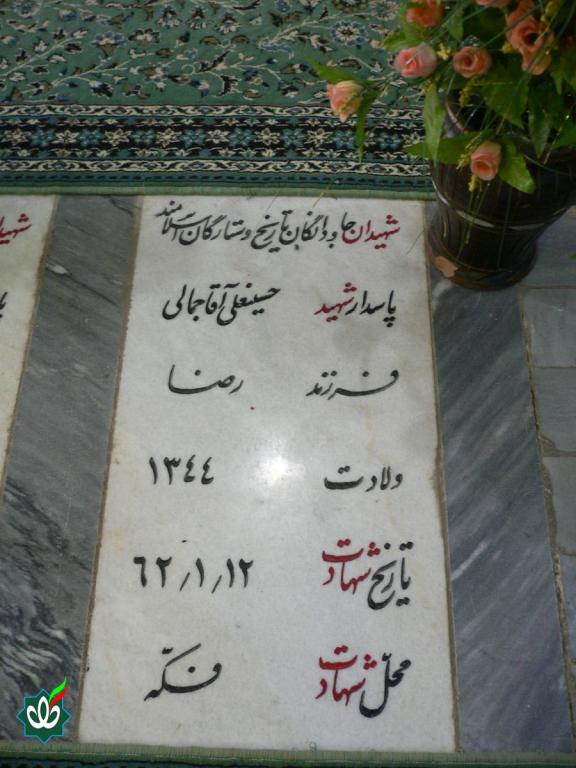 شهیدان جاودانگان تاریخ و ستارگان اسلامند
پاسدار شهید حسینعلی آقاجمالی
فرزند رضا
ولادت ۱۳٤٤
تاریخ شهادت ٦۲٫۱٫۱۲
محلّ شهادت فکّه